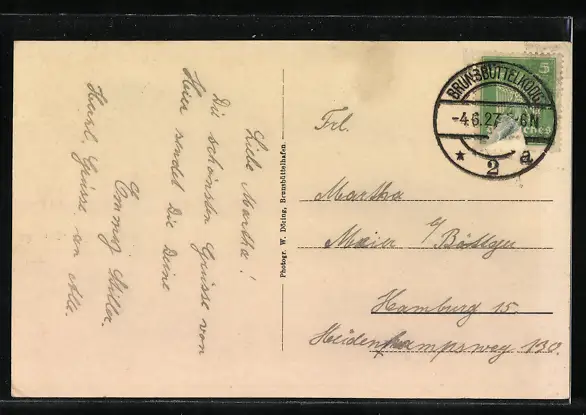 Liebe Martha!
Die schönsten Grüsse von
Hier sendet Dir Deine
Emmy
Herzl. Grüsse an Alle.
Photogr. W. Döring, Brunsbüttelhafen.
BRUNSBÜTTELKOOG
-4.6.27. -6N
* 2 a
5
Frl.
Martha
Meier
Hamburg 15.
Heidenkampsweg 130.